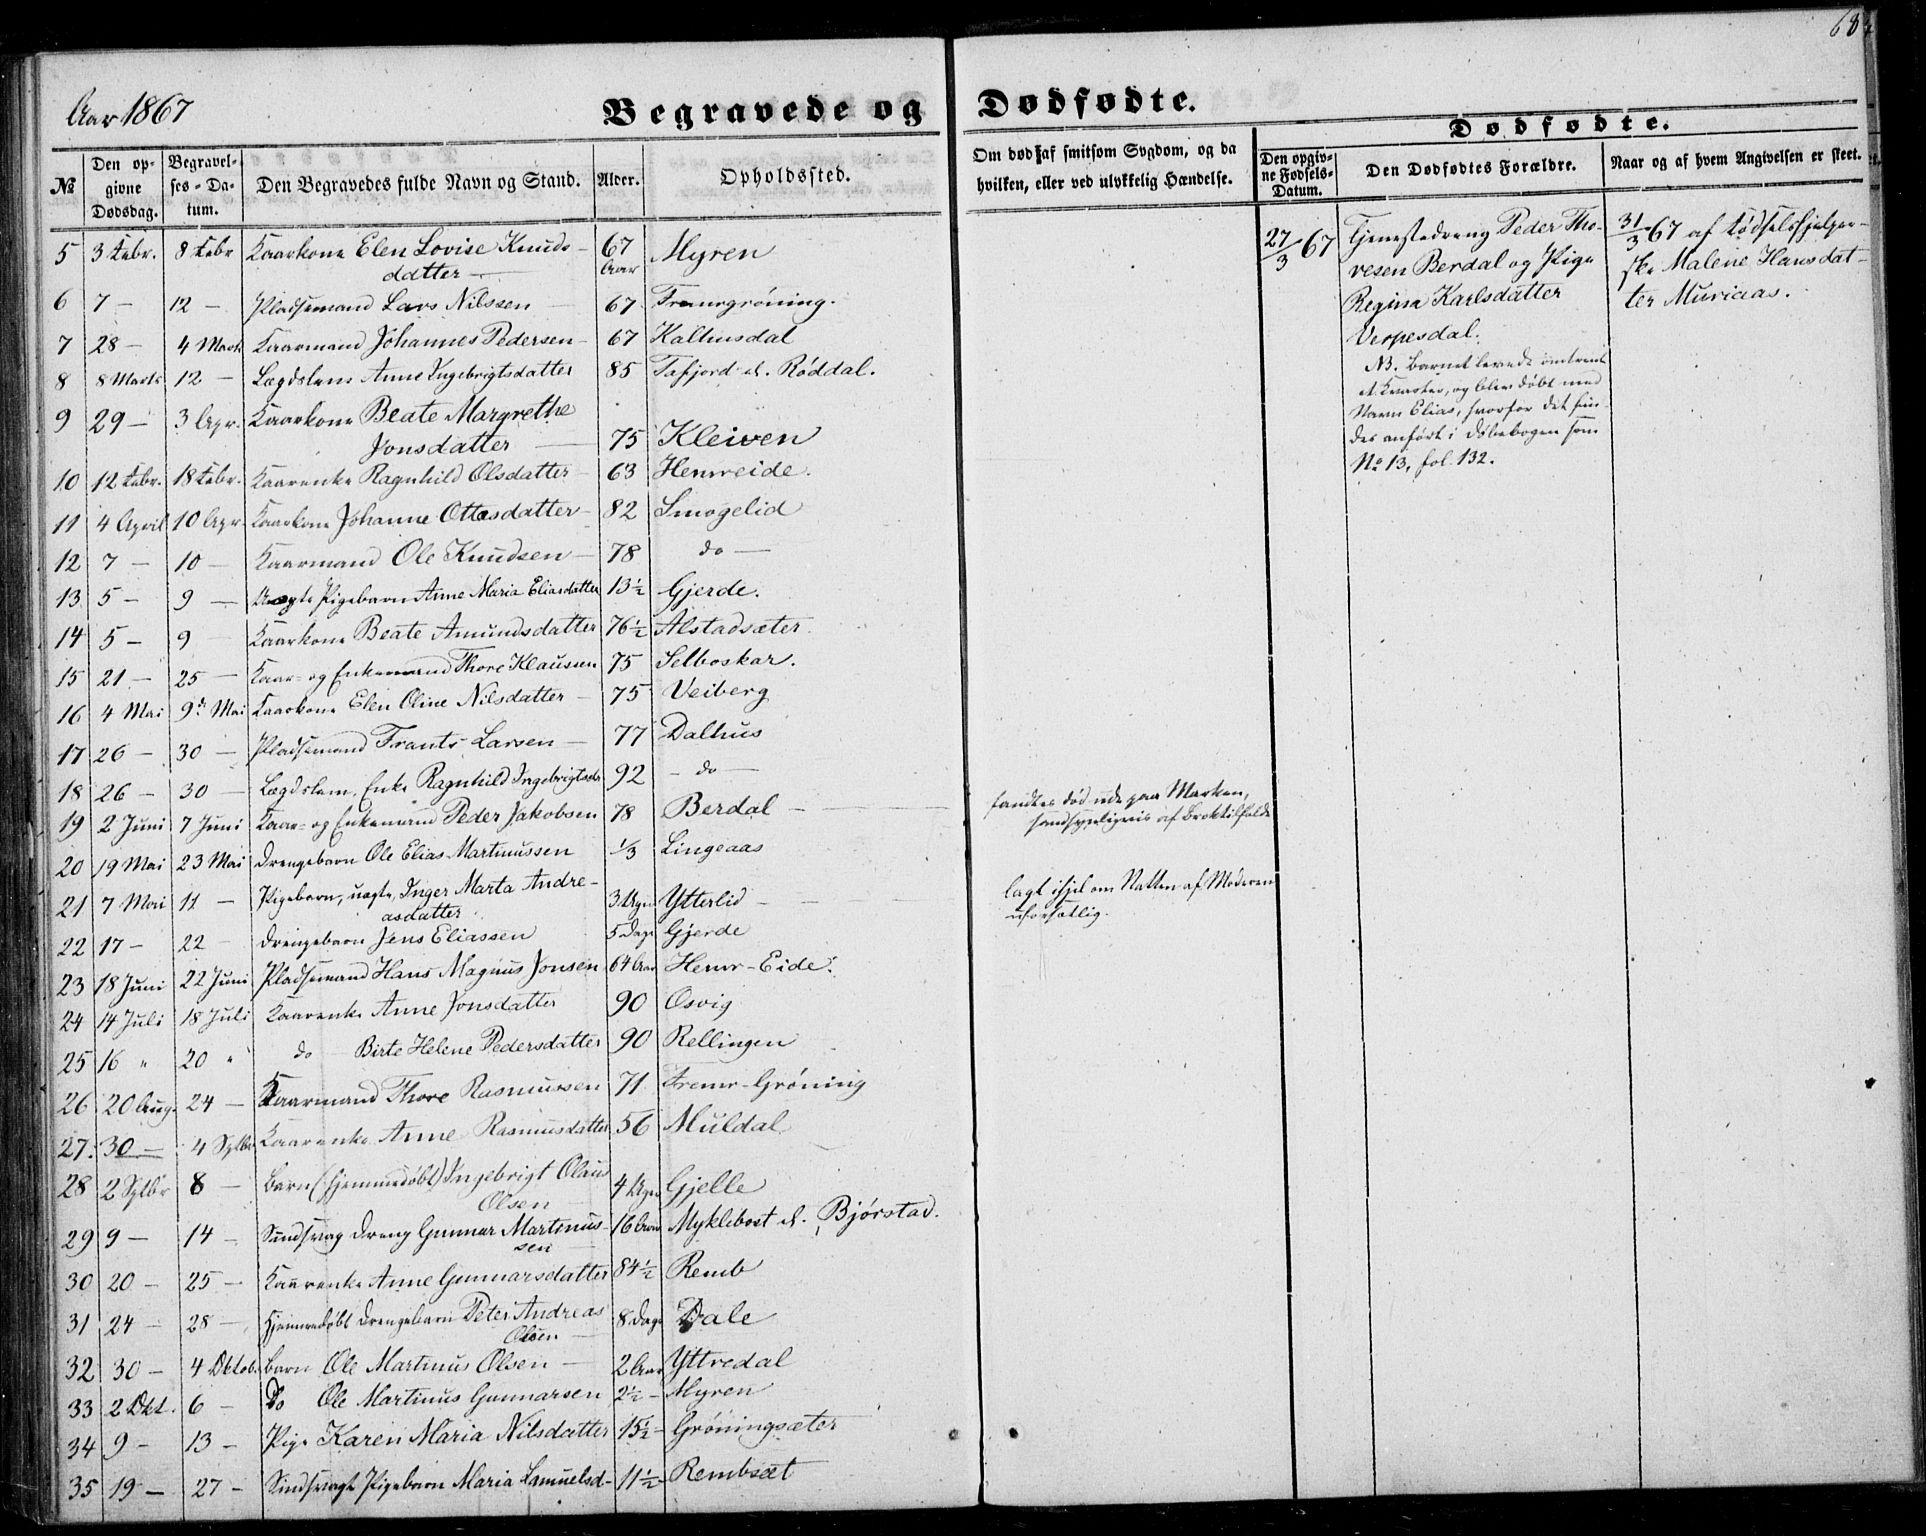 Aar 1867
Begravede og Dødfødte.
Dødfødte.
№
Den opgivne Dødsdag.
Begravelses-Datum.
Den Begravedes fulde Navn og Stand.
Alder.
Opholdssted.
Om død af smitsom Sygdom, og da hvilken, eller ved ulykkelig Hændelse.
Den opgivne Fødsels-Datum.
Den Dødfødtes Forældre.
Naar og af hvem Angivelsen er skeet.
5 3 Febr. 8 Febr Kaarkone Elen Lovise Knuds- 67 Aar Myren
datter
6 7 — 12 — Pladsemand Lars Nilssen 67 Fremrgrøning.
7 28 — 4 Marts Kaarmand Johannes Pedersen 67 Kalhusdal
8 8 Marts 12 — Lægdslem Anne Ingebrigtsdatter 85 Tafjord el. Røddal.
9 29 — 3 Apr. Kaarkone Beate Margrethe
Jonsdatter 75 Kleiven
10 12 Febr. 18 Febr. Kaarenke Ragnhild Olsdatter 63 Hemreide.
11 4 April 10 Apr. Kaarkone Johanne Ottesdatter 82 Smogelid
12 7 — 10 — Kaarmand Ole Knudsen 78 do
13 5 — 9 — Uægte Pigebarn Anne Maria Eliasdatter 13½ Gjerde.
14 5 — 9 Kaarkone Beate Amundsdatter 76½ Alstadsæter.
15 21 — 25 — Kaar- og Enkemand Thore Klausen 75 Selboskar.
16 4 Mai 9de Mai Kaarkone Elen Oline Nilsdatter 75 Veiberg
17 26 — 30 — Pladsemand Frants Larsen 77 Dalhus
18 26 — 30 — Lægdslem, Enke Ragnhild Ingebrigtsdr 92 do
19 2 Juni 7 Juni Kaar- og Enkemand Peder Jakobsen 78 Berdal — fandtes død ude paa Marken,
sandsynligvis af Broktilfælde
20 19 Mai 23 Mai Drengebarn Ole Elias Martinussen ⅓ Lingeaas
21 7 Mai 11 — Pigebarn, uægte, Inger Marta Andre- 3 Uger Ytterlid — lagt ihjel om Natten af Moderen
asdatter uforsætlig.
22 17 — 22 Drengebarn Jens Eliassen 5 Dage Gjerde
23 18 Juni 22 Juni Pladsemand Hans Magnus Jonsen 64 Aar Hemr-Eide.
24 14 Juli 18 Juli Kaarenke Anne Jonsdatter 90 Osvig
25 16 " 20 " do Birte Helene Pedersdatter 90 Rellingen
26 20 Aug. 24 — Kaarmand Thore Rasmussen 71 Fremr-Grøning
27. 30 — 4 Sptbr Kaarenke Anne Rasmusdatter 56 Muldal
28 2 Sptbr 8 — Barn (hjemmedøbt) Ingebrigt Olaus 4 Uger Gjelle
Olsen
29 9 — 14 — Sindssvag Dreng Gunnar Martinus- 16 Aar Myklebost el. Bjørstad.
sen
30 20 — 25 — Kaarenke Anne Gunnarsdatter 84½ Remb
31 24 — 28 — Hjemmedøbt Drengebarn Peter Andreas 8 Dage Dale
Olsen
32 30 — 4 Oktob. Barn Ole Martinus Olsen — 2 Aar Yttredal
33 2 Okt. 6 — Do Ole Martinus Gunnarsen 2½ — Myren
34 9 — 13 — Pige Karen Maria Nilsdatter 15½ — Grøningsæter
35 19 — 27 — Sindssvagt Pigebarn Maria Samuelsd- 11½ — Rembsæt
27/3 67 Tjenestedreng Peder Tho-
resen Berdal og Pige
Regina Karlsdatter
Verpesdal.
NB. Barnet levede omtrent
et Kvarter, og blev døbt med
Navn Elias, hvorfor det fin-
des anført i Døbebogen som
No 13, fol. 132.
31/3 67 af Fødselshjelper-
ske Malene Hansdat-
ter Muriaas.